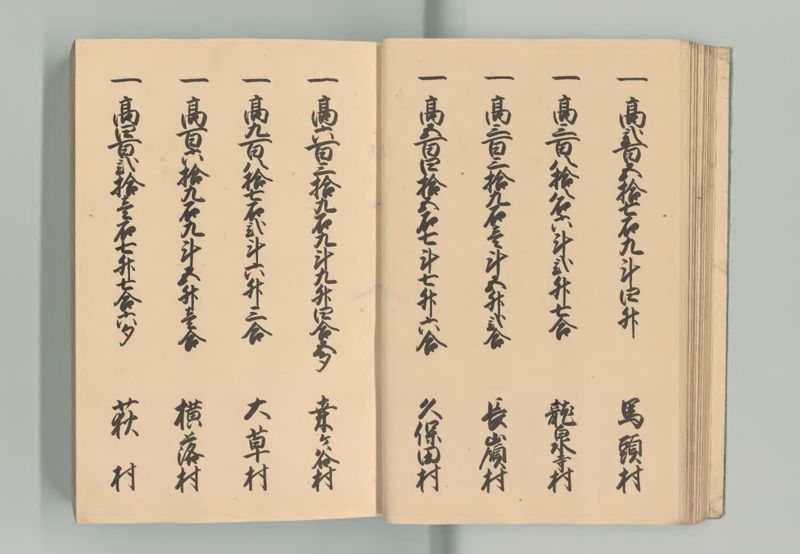 一 高弐百五拾七石九斗四升 馬頭村
一 高三百八拾八石六斗弐升七合 龍泉寺村
一 高三百三拾九石壱斗五升弐合 長嶺村
一 高五百四拾五石七斗七升六合 久保田村
一 高六百三拾九石九斗九升四合五夕 桑ヶ谷村
一 高九百八拾七石弐斗六升三合 大草村
一 高百六拾九石九斗五升壱合 横落村
一 高四百弐拾壱石七升七合六夕 荻村